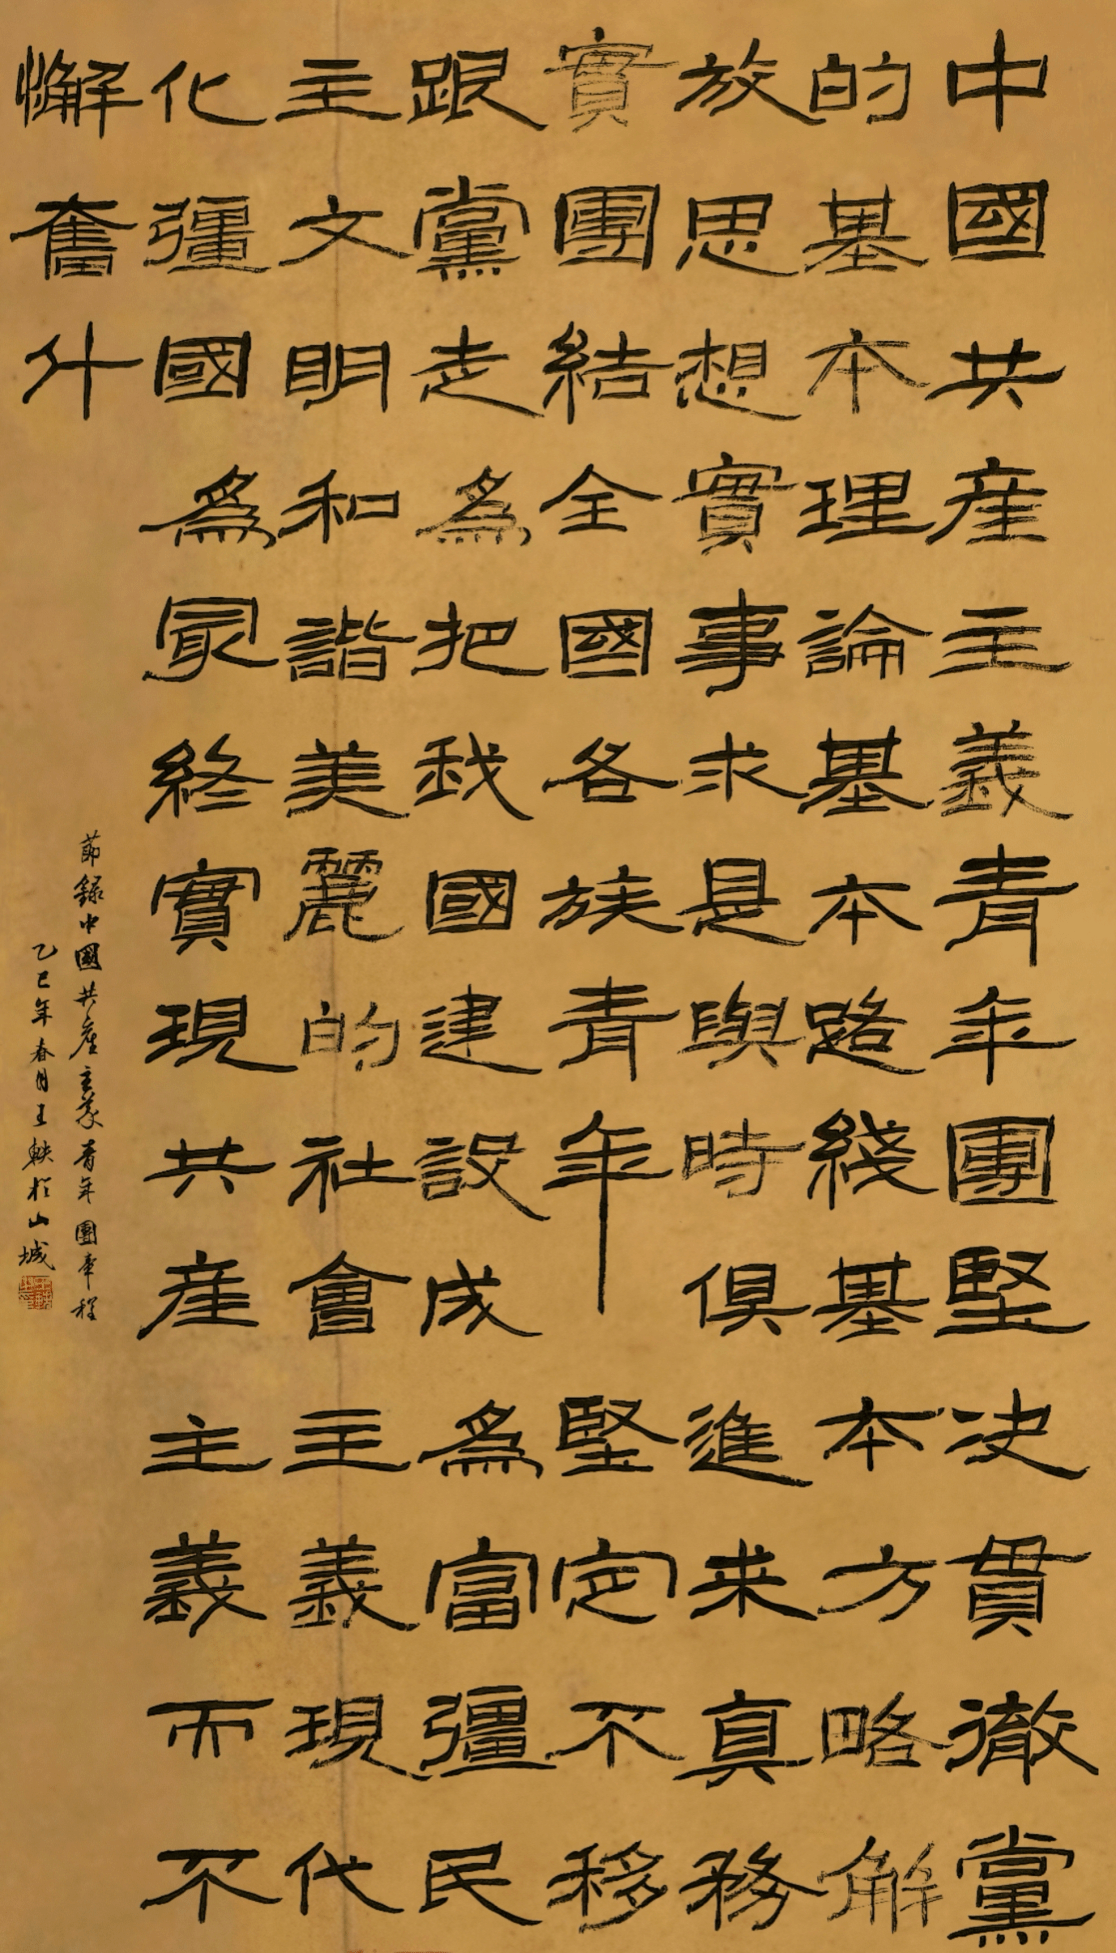 中國共産主義青年團堅決貫徹黨
的基本理論基本路綫基本方略解
放思想實事求是與時俱進来真務
實團結全國各族青年堅定不移
跟黨走爲把我國建設成爲富彊民
主文明和諧美麗的社會主義現代
化彊國爲冣終實現共産主義而不
懈奮什
節録中國共産主義青年團章程
乙巳年春月王軼於山城